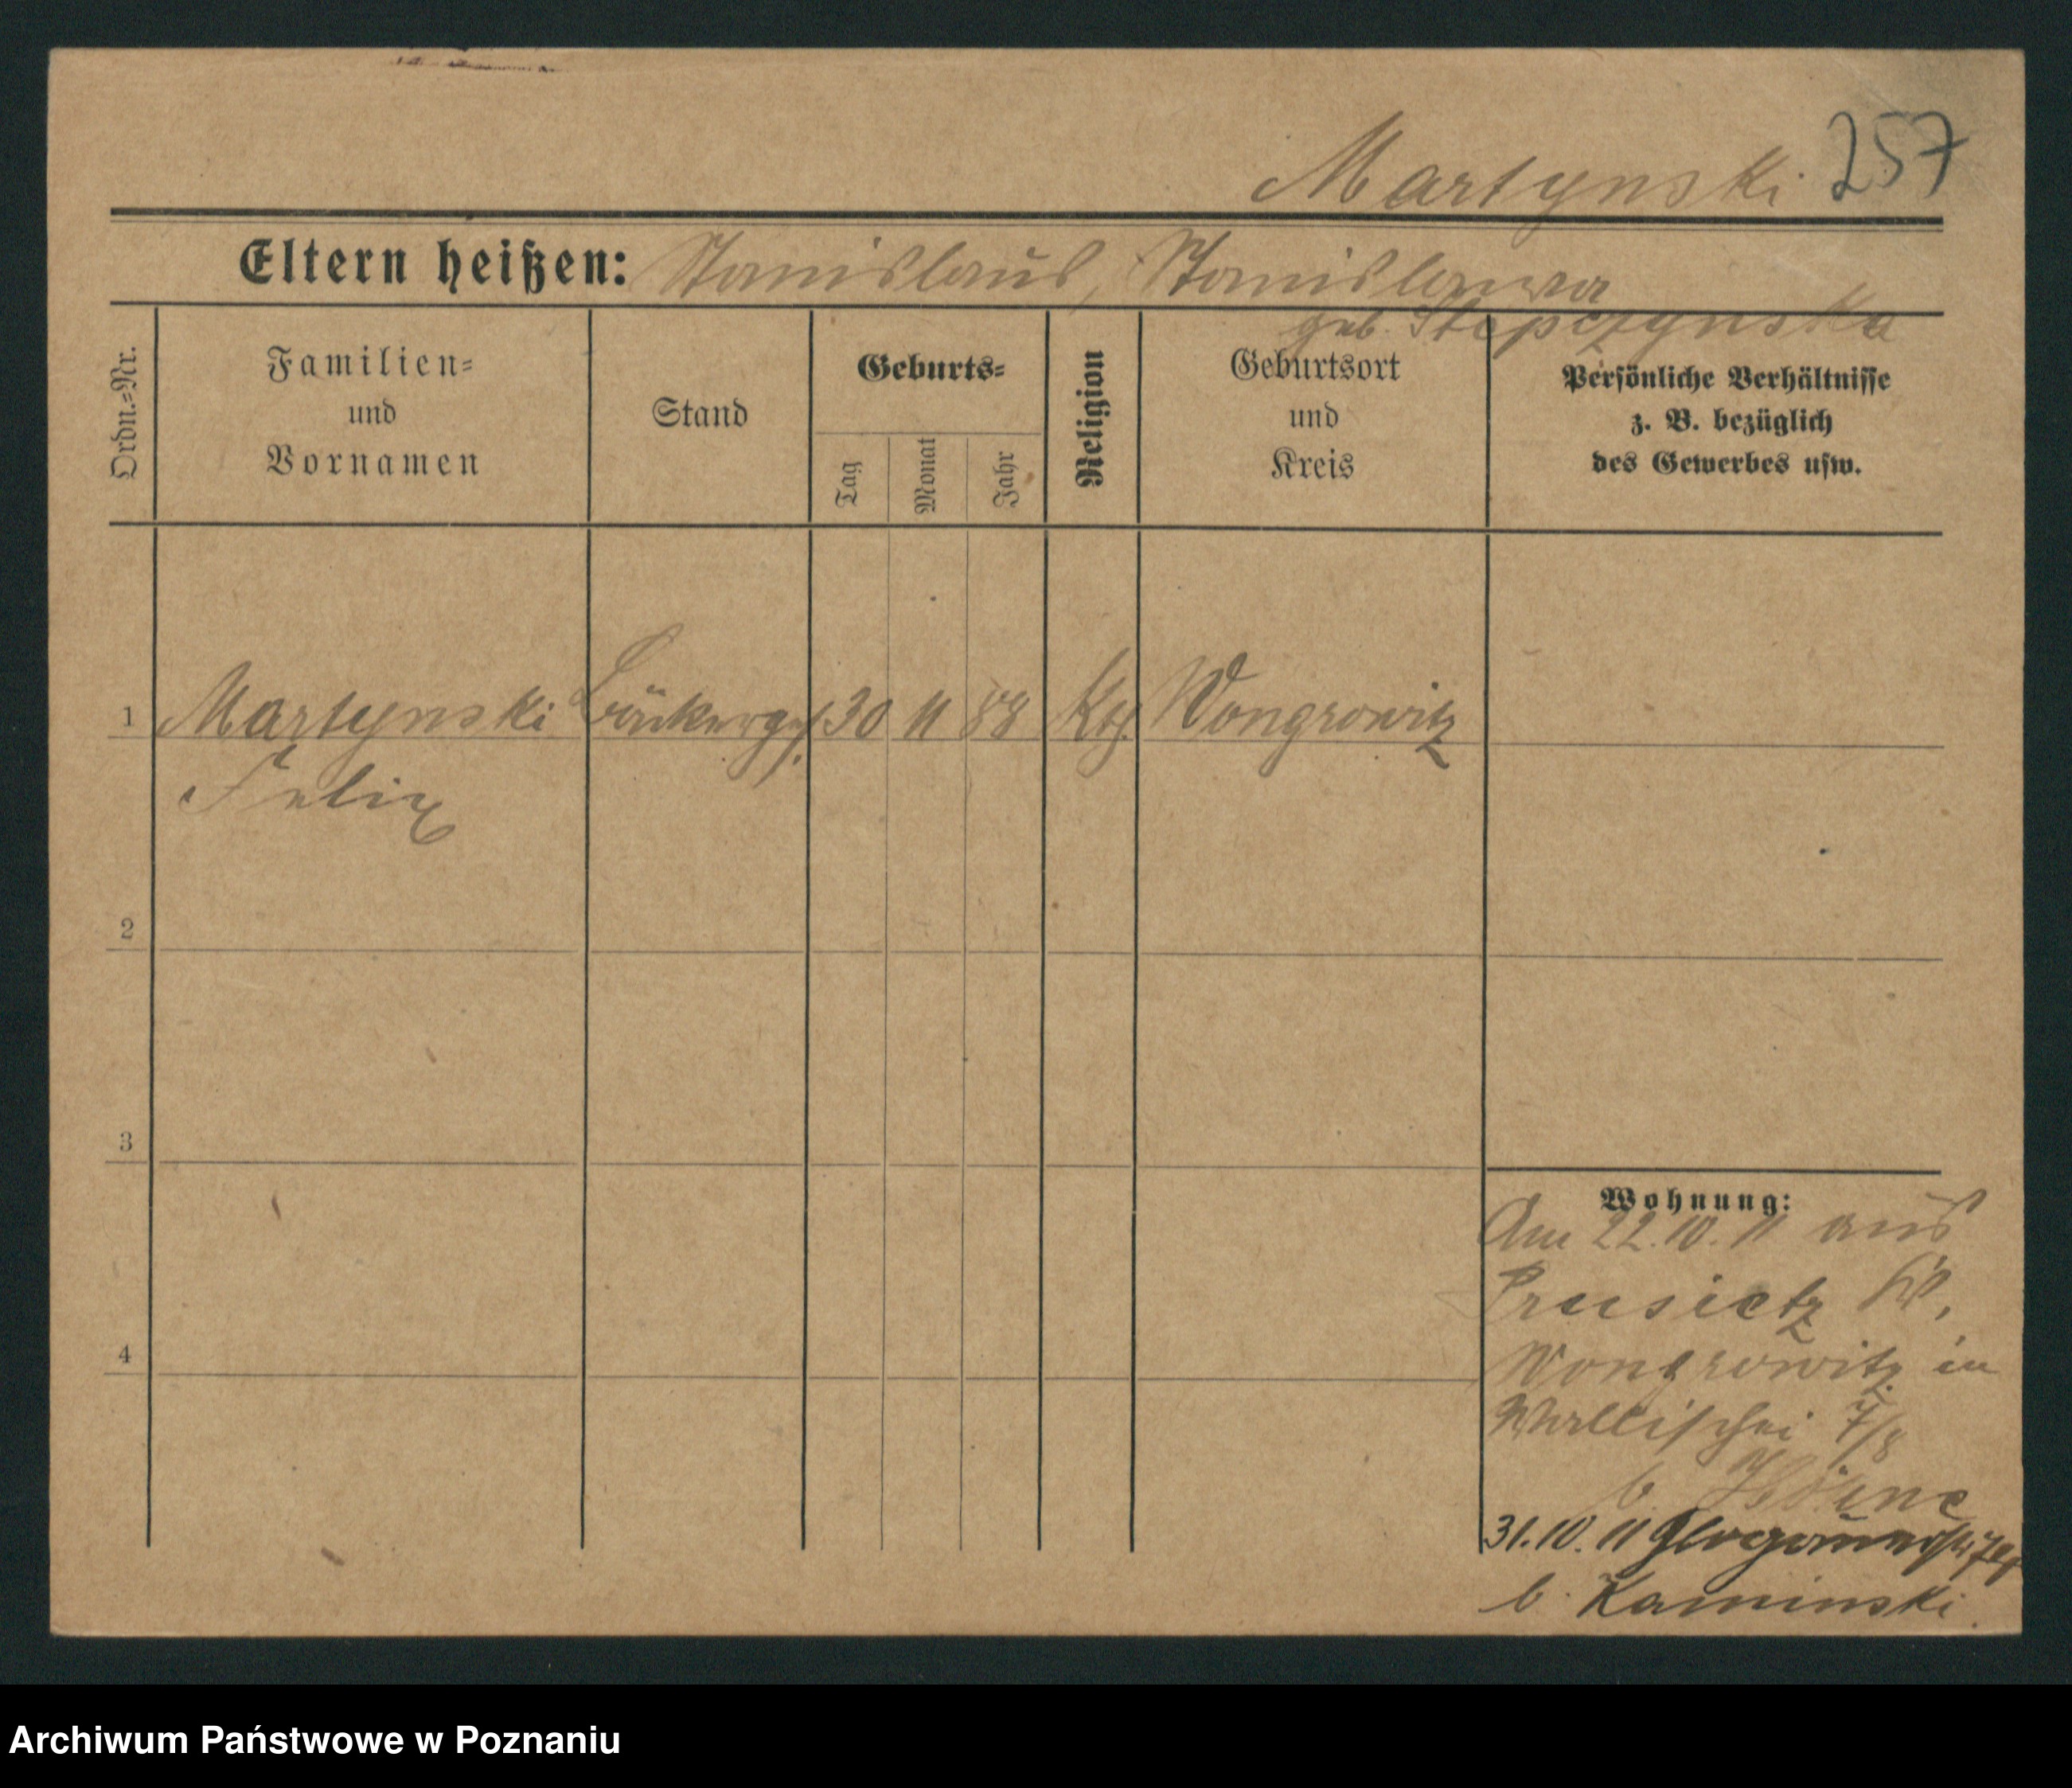 Martynski 257
Eltern heißen: Stanislaus, Stanislawa
geb. Stepczynska
Ordn.=Nr.
Familien=
und
Vornamen
Stand
Geburts=
Tag
Monat
Jahr
Religion
Geburtsort
und
Kreis
Persönliche Verhältnisse
z. B. bezüglich
des Gewerbes usw.
1 Martynski Bäckerges. 30 11 88 Kth. Wongrowitz
Felix
2
3
4
Wohnung:
Am 22.10.11 aus
Prusietz Kr.
Wongrowitz in
Wallischei 7/8
b.
31.10.11
b. Kaminski.
Archiwum Państwowe w Poznaniu